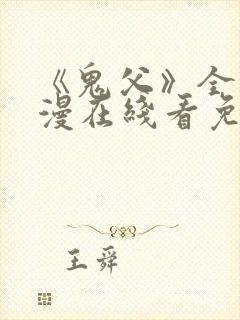 《鬼父》全
漫在线看免
王舜